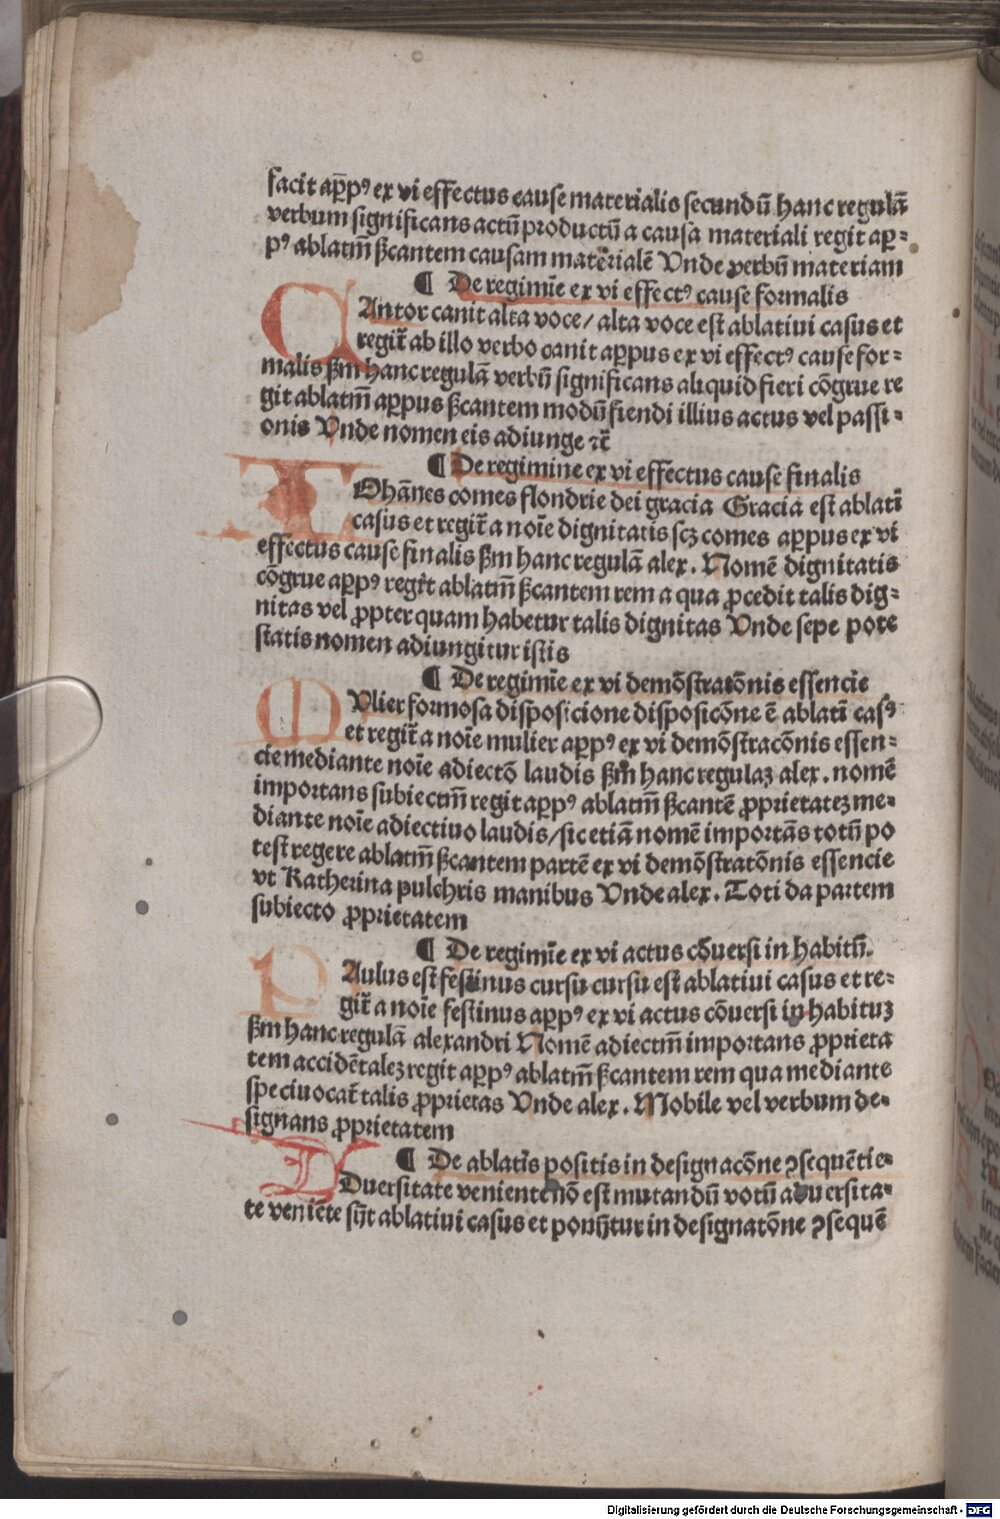 facit ap̄pꝰ ex vi effectus cause materialis secundū hanc regulā
verbum significans actū productū a causa materiali regit ap̄⸗
pꝰ ablatm̄ ßcantem causam materialē Unde ꝓerbū materiam
¶ De regimīe ex vi effectꝰ cause formalis
CAntor canit alta voce/ alta voce est ablatiui casus et
regit̄ ab illo verbo canit ap̄pus ex vi effectꝰ cause for⸗
malis ßm hanc regulā verbū significans aliquid fieri cōgrue re
git ablatm̄ ap̄pus ßcantem modū fiendi illius actus vel passi⸗
onis Unde nomen eis adiunge ⁊c̄
¶ De regimine ex vi effectus cause finalis
IOhānes comes flondrie dei gracia Gracia est ablati
casus et regit̄ a noīe dignitatis scꝫ comes ap̄pus ex vi
effectus cause finalis ßm hanc regulā alex. Nomē dignitatis
cōgrue ap̄pꝰ regit ablatm̄ ßcantem rem a qua ꝓcedit talis dig⸗
nitas vel ꝓpter quam habetur talis dignitas Unde sepe pote
statis nomen adiungitur istis
¶ De regimīe ex vi demōstratōnis essencie
MUlier formosa disposicione disposicōne ē ablati casꝰ
et regit̄ a noīe mulier ap̄pꝰ ex vi demōstracōnis essen⸗
cie mediante noīe adiectō laudis ßm hanc regulaꝫ alex. nomē
importans subiectm̄ regit ap̄pꝰ ablatm̄ ßcantē ꝓprietateꝫ me⸗
diante noīe adiectiuo laudis/ sic etiā nomē importās totū po
test regere ablatm̄ ßcantem partē ex vi demōstratōnis essencie
vt Katherina pulchris manibus Unde alex. Toti da partem
subiecto ꝓprietatem
¶ De regimīe ex vi actus cōuersi in habitū.
PAulus est festinus cursu cursu est ablatiui casus et re⸗
git̄ a noīe festinus ap̄pꝰ ex vi actus cōuersi in habituꝫ
ßm hanc regulā alexandri Nomē adiectm̄ importans ꝓprieta
tem accidētaleꝫ regit ap̄pꝰ ablatm̄ ßcantem rem qua mediante
speciuocat̄ talis ꝓprietas Unde alex. Mobile vel verbum de⸗
signans ꝓprietatem
¶ De ablatis positis in designacōne ꝯsequētie⸗
ADuersitate veniente nō est mutandū votū aduersita⸗
te veniēte sūt ablatiui casus et ponūtur in designatōne ꝯsequē
Digitalisierung gefördert durch die Deutsche Forschungsgemeinschaft - DFG